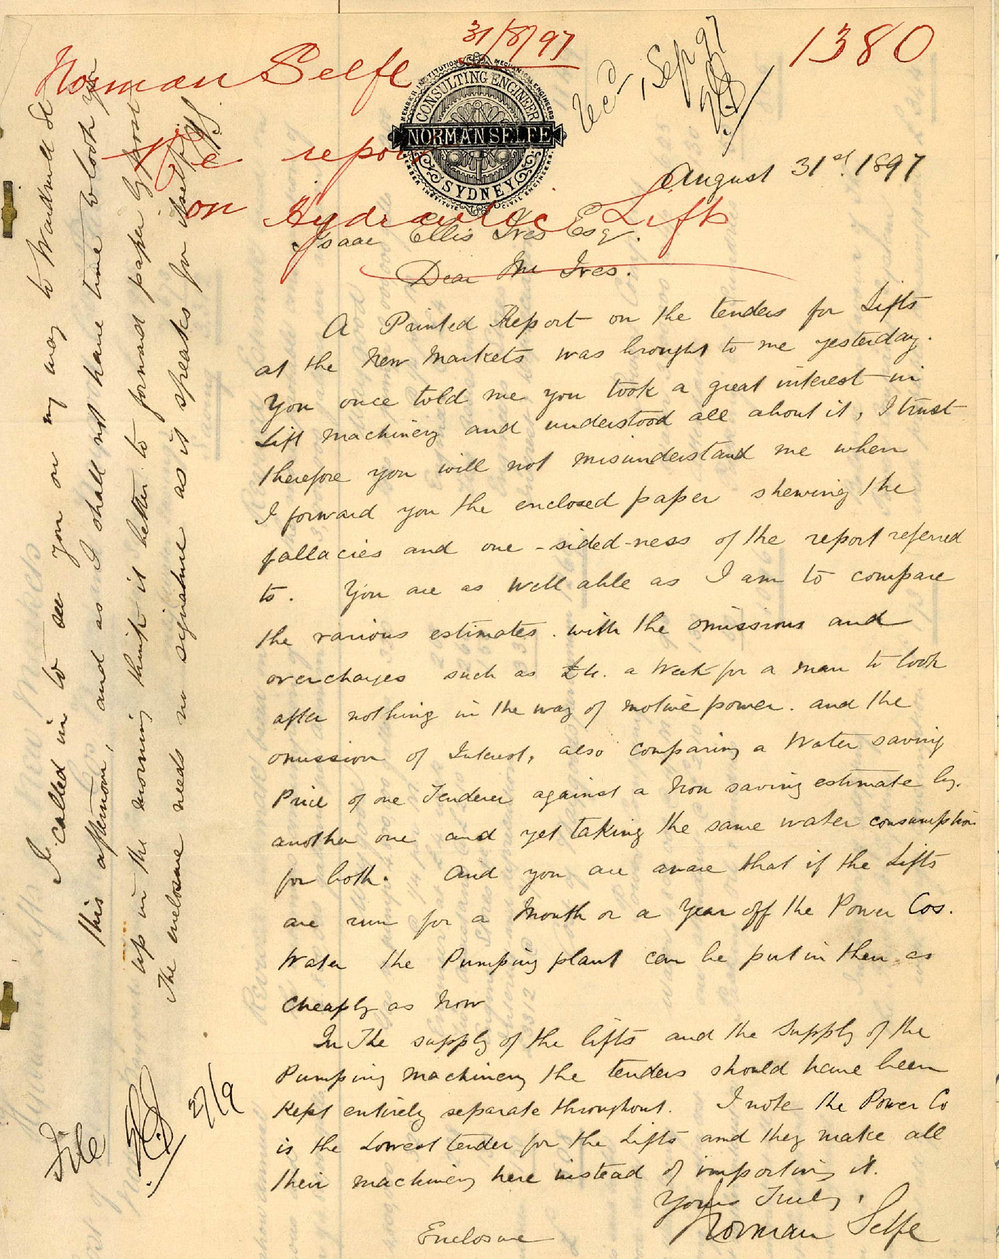 31/8/97
1380
Norman Selfe
Re report
on Hydraulic Lifts
Recd 1 Sep 97
MEMBER INSTITUTION MECHANICAL ENGINEERS
CONSULTING ENGINEER
NORMAN SELFE
SYDNEY
August 31st 1897
Isaac Ellis Ives Esq.
Dear Mr Ives.
A Printed Report on the tenders for Lifts
at the New Markets was brought to me yesterday.
You once told me you took a great interest in
Lift machinery and understood all about it, I trust
therefore you will not misunderstand me when
I forward you the enclosed paper shewing the
fallacies and one-sided-ness of the report referred
to. You are as well able as I am to compare
the various estimates. with the omissions and
overcharges such as £4. a Week for a man to look
after nothing in the way of motive power. and the
omission of Interest, also comparing a Water saving
Price of one Tenderer against a Non saving estimate by.
another one and yet taking the same water consumption
for both. And you are aware that if the Lifts
are run for a Month or a Year off the Power Cos.
Water the Pumping plant can be put in then as
cheaply as Now
In The supply of the lifts and the Supply of the
Pumping Machinery the tenders should have been
Kept entirely separate throughout. I note the Power Co
is the Lowest tender for the Lifts and they make all
their machinery here instead of importing it.
Yours Truly,
Norman Selfe
Enclosure
I called in to see you on my way to Windmill St
this afternoon, and as I shall not have time to look you
up in the morning think it better to forward paper by post
The enclosure needs no signature as it speaks for itself
File
27/9